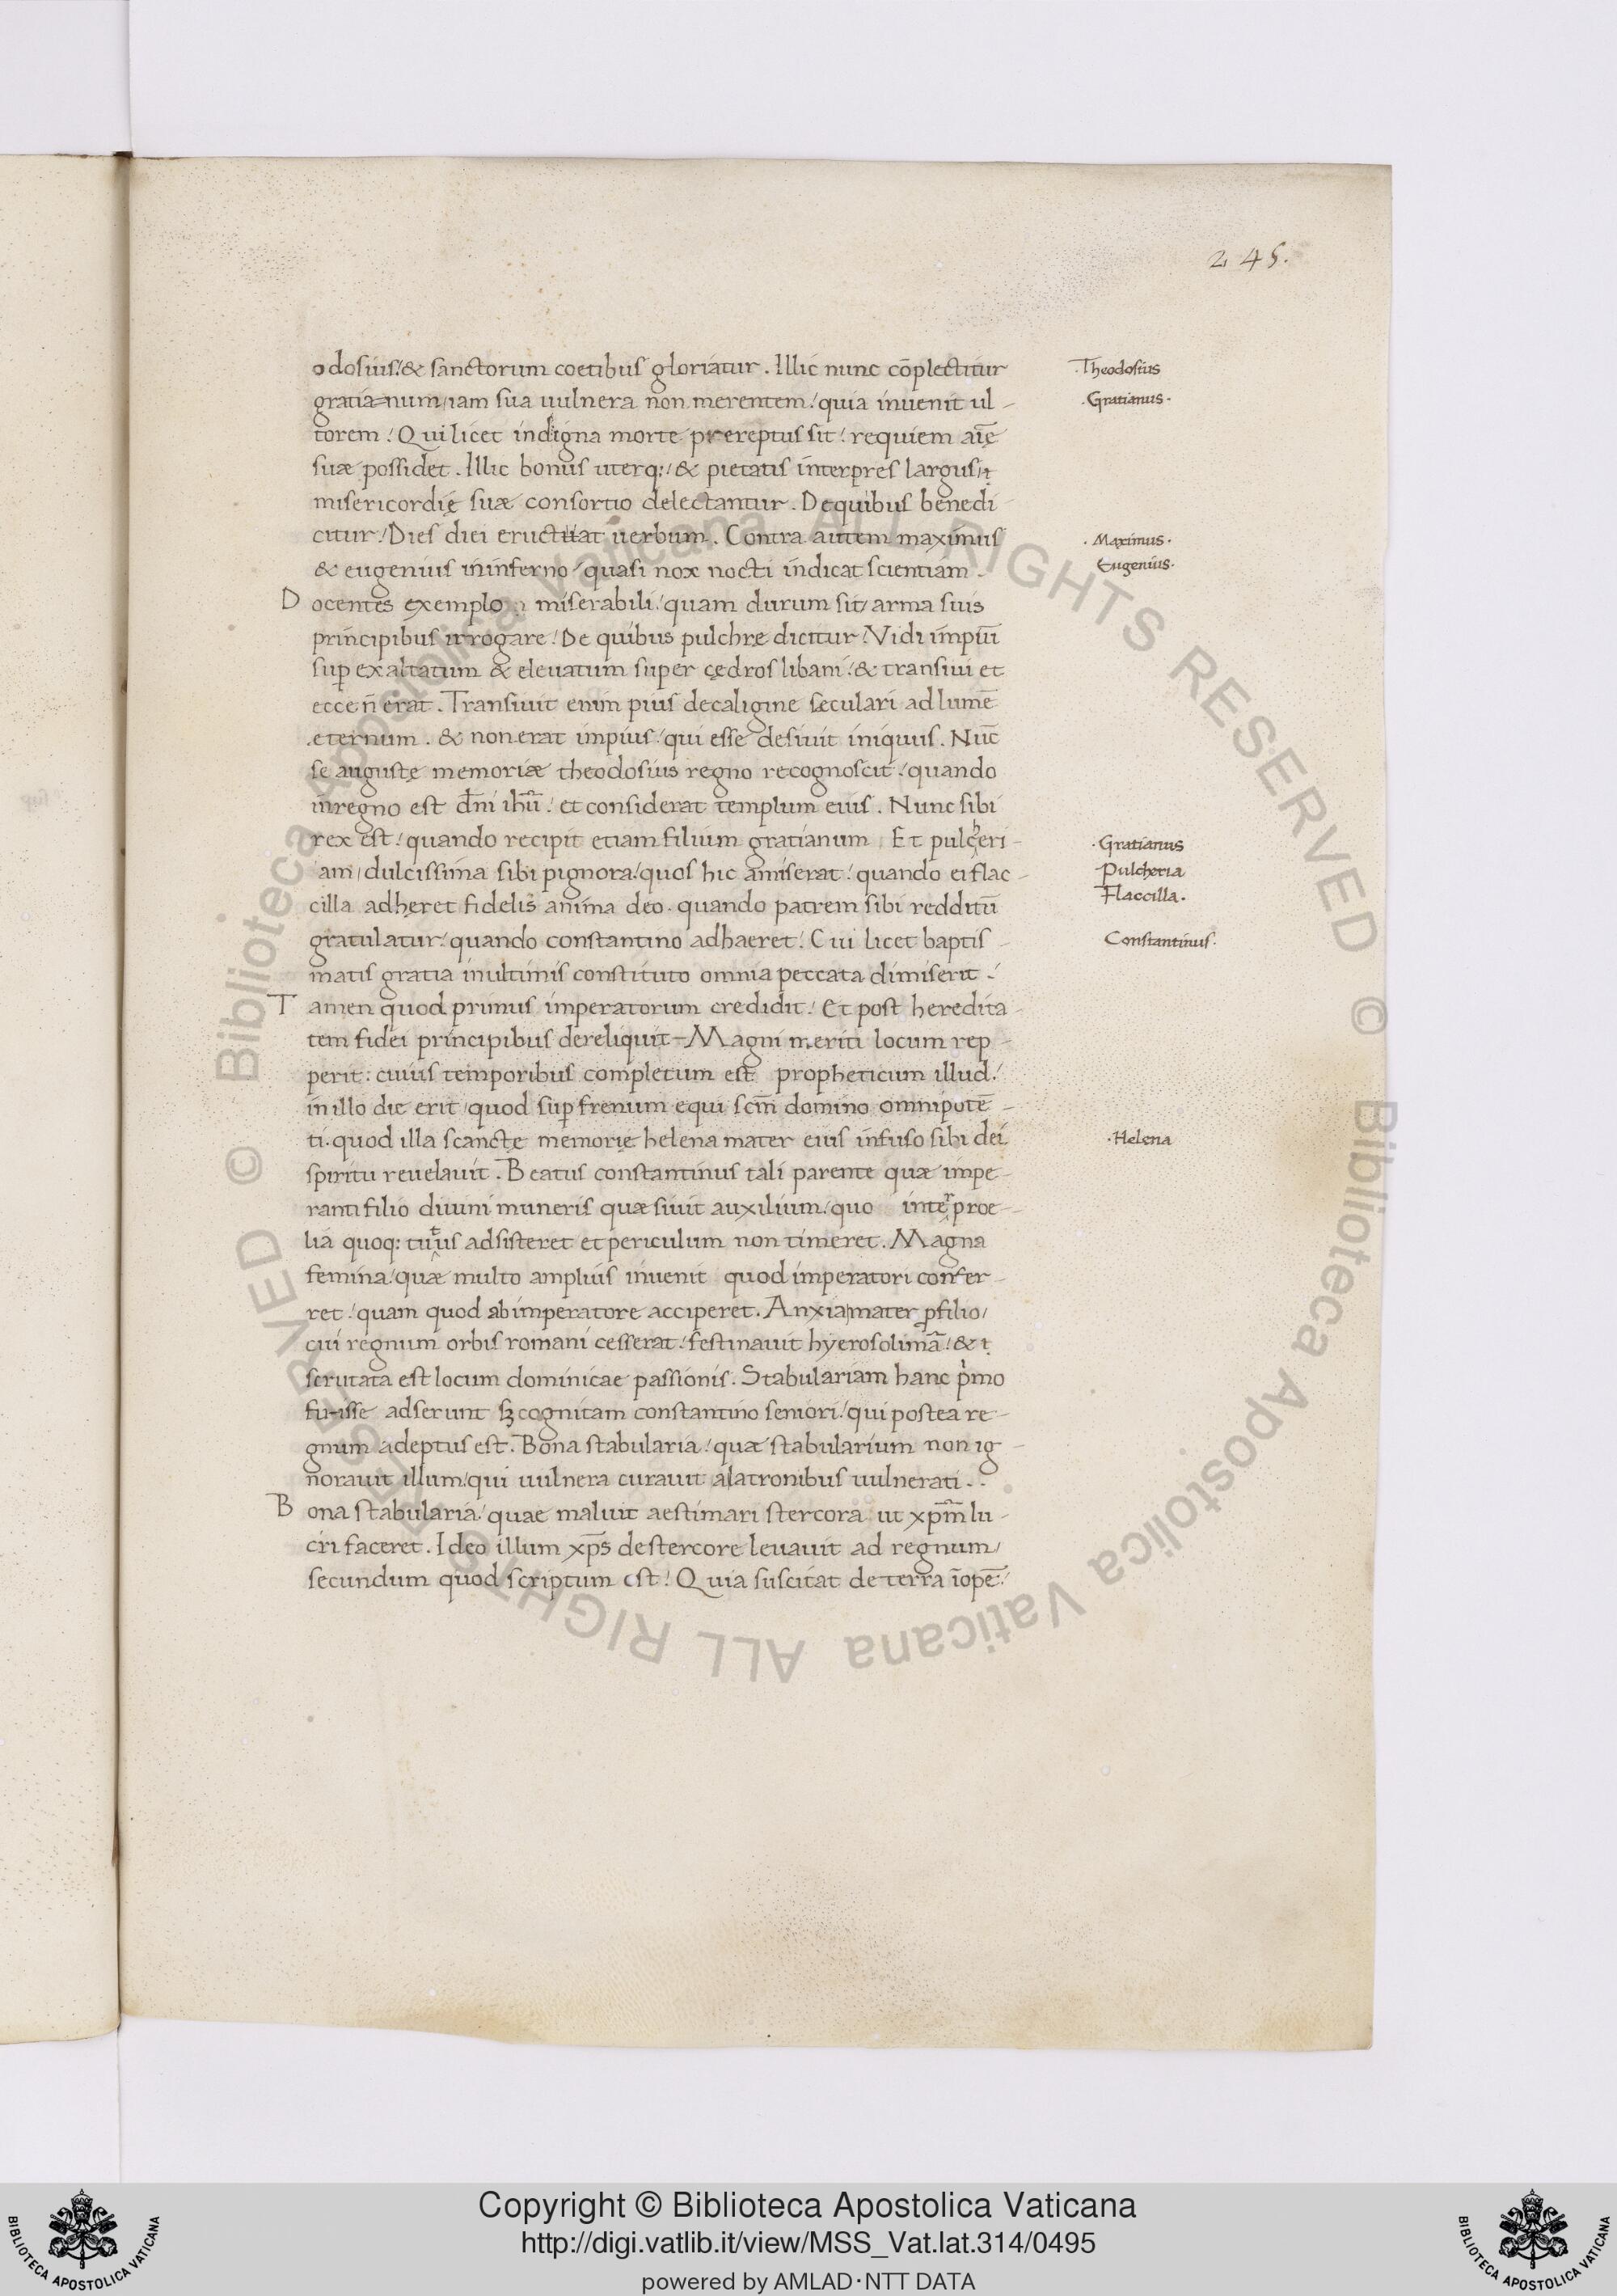 245.
odosius/ & sanctorum coetibus gloriatur. Illic nunc cōplectitur
Theodosius
gratia=num/ iam sua uulnera non merentem/ quia inuenit ul-
.Gratianus.
torem/ Qui licet indigna morte prereptus sit/ requiem aīę
suæ possidet. Illic bonus uterq:/ & pietatis interpres largus/
misericordię suæ consortio delectantur. De quibus benedi
citur/ Dies diei eructuat uerbum. Contra autem maximus
.Maximus.
& eugenius in inferno/ quasi nox nocti indicat scientiam.
Eugenius.
Docentes exemplo miserabili/ quam durum sit/ arma suis
principibus irrogare/ De quibus pulchre dicitur/ Vidi impiū
sup exaltatum & eleuatum super cedros libani/ & transiui et
ecce n̄ erat. Transiuit enim pius de caligine seculari ad lumē
.eternum. & non erat impius/ qui esse desiuit iniquus. Nūc
se augustę memoriæ theodosius regno recognoscit/ quando
in regno est dn̄i ihū/ et considerat templum eius. Nunc sibi
rex est/ quando recipit etiam filium gratianum Et pulcheri-
.Gratianus
am/ dulcissima sibi pignora/ quos hic amiserat/ quando ei flac-
Pulcheria
cilla adheret fidelis anima deo. quando patrem sibi redditū
Flaccilla.
gratulatur/ quando constantino adhaeret/ Cui licet baptis-
Constantinus.
matis gratia in ultimis constituto omnia peccata dimiserit-/
Tamen quod primus imperatorum credidit/ Et post heredita-
tem fidei principibus dereliquit- Magni meriti locum rep-
perit: cuius temporibus completum est propheticum illud/
in illo die erit/ quod sup frenum equi scm̄ domino omnipotē-
ti. quod illa scanctę memorię helena mater eius infuso sibi dei
.Helena
spiritu reuelauit. Beatus constantinus tali parente quæ impe-
ranti filio diuini muneris quæsiuit auxilium/ quo inter proe-
lia quoq: tutus adsisteret et periculum non timeret. Magna
femina/ quæ multo amplius inuenit quod imperatori confer-
ret/ quam quod ab imperatore acciperet. Anxia mater p filio/
cui regnum orbis romani cesserat/ festinauit hyerosolimā/ &
scrutata est locum dominicae passionis. Stabulariam hanc p̍mo
fu-isse adserunt sꝫ cognitam constantino seniori/ qui postea re-
gnum adeptus est. Bona stabularia/ quæ stabularium non ig-
norauit illum/ qui uulnera curauit a latronibus uulnerati..
Bona stabularia/ quae maluit aestimari stercora ut xpm̄ lu-
cri faceret. Ideo illum xps̄ de stercore leuauit ad regnum/
secundum quod scriptum est/ Quia suscitat de terra īopē/
© Biblioteca Apostolica Vaticana ALL RIGHTS RESERVED © Biblioteca Apostolica Vaticana ALL RIGHTS RESERVED
Copyright © Biblioteca Apostolica Vaticana
http://digi.vatlib.it/view/MSS_Vat.lat.314/0495
powered by AMLAD·NTT DATA
BIBLIOTECA APOSTOLICA VATICANA
BIBLIOTECA APOSTOLICA VATICANA